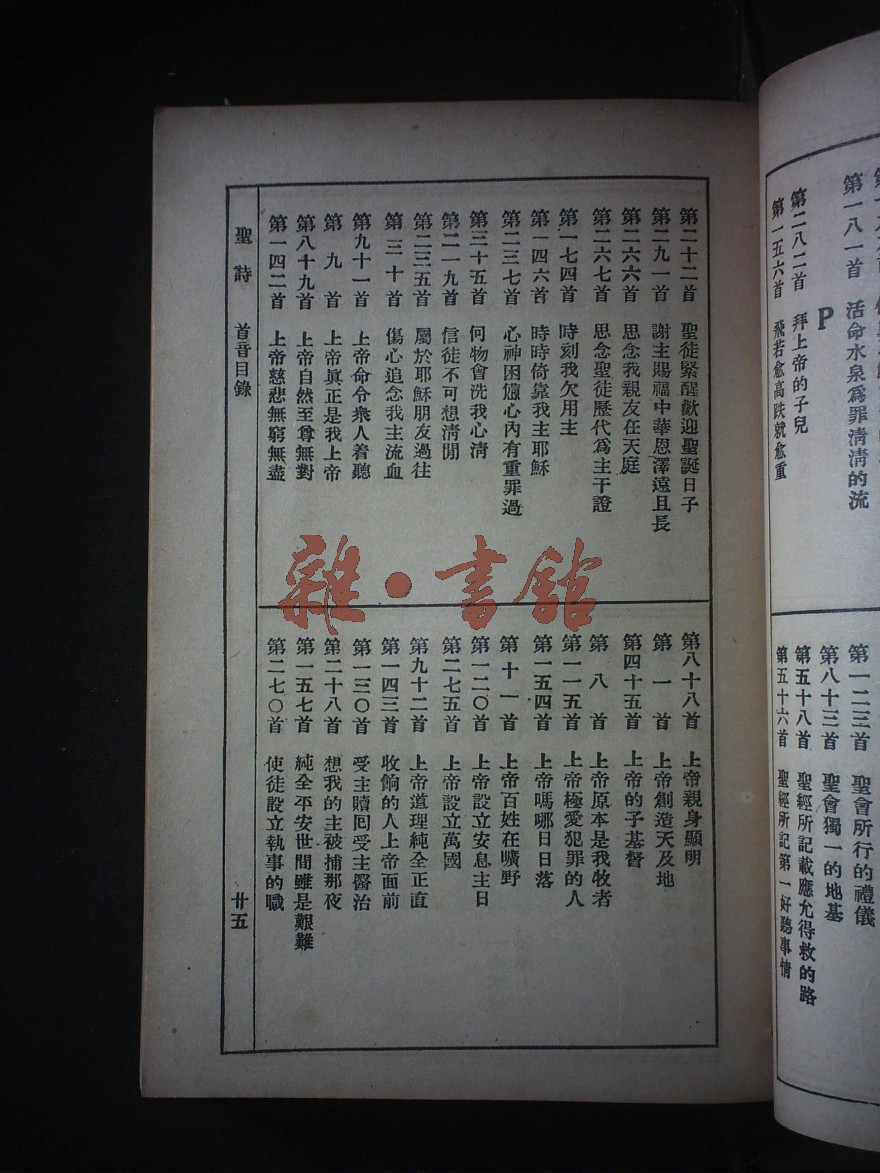 第一八一首　活命水泉為罪清清的流
P
第二八二首　拜上帝的子兒
第一五六首　飛若愈高跌就愈重
第一二三首　聖會所行的禮儀
第八十三首　聖會獨一的地基
第五十八首　聖經所記載應允得救的路
第五十六首　聖經所記第一好聽事情
第二十二首　聖徒緊醒歡迎聖誕日子
第二九一首　謝主賜福中華恩澤遠且長
第二六六首　思念我親友在天庭
第二六七首　思念聖徒歷代為主干證
第一七四首　時刻我欠用主
第一四六首　時時倚靠我主耶穌
第二三七首　心神困憊心內有重罪過
第三十五首　何物會洗我心清
第二一九首　信徒不可想清閒
第二三五首　屬於耶穌朋友過往
第三十首　傷心追念我主流血
第九十一首　上帝命令衆人着聽
第九首　上帝眞正是我上帝
第八十九首　上帝自然至尊無對
第一四二首　上帝慈悲無窮無盡
第八十八首　上帝親身顯明
第一首　上帝創造天及地
第四十五首　上帝的子基督
第八首　上帝原本是我牧者
第一一五首　上帝極愛犯罪的人
第一五四首　上帝嗎哪日日落
第十一首　上帝百姓在曠野
第一二〇首　上帝設立安息主日
第二七五首　上帝設立萬國
第九十二首　上帝道理純全正直
第一四三首　收餉的人上帝面前
第一三〇首　受主贖囘受主醫治
第二十八首　想我的主被捕那夜
第一五七首　純全平安世間雖是艱難
第二七〇首　使徒設立執事的職
聖詩　首音目錄　廿五
雜·書館